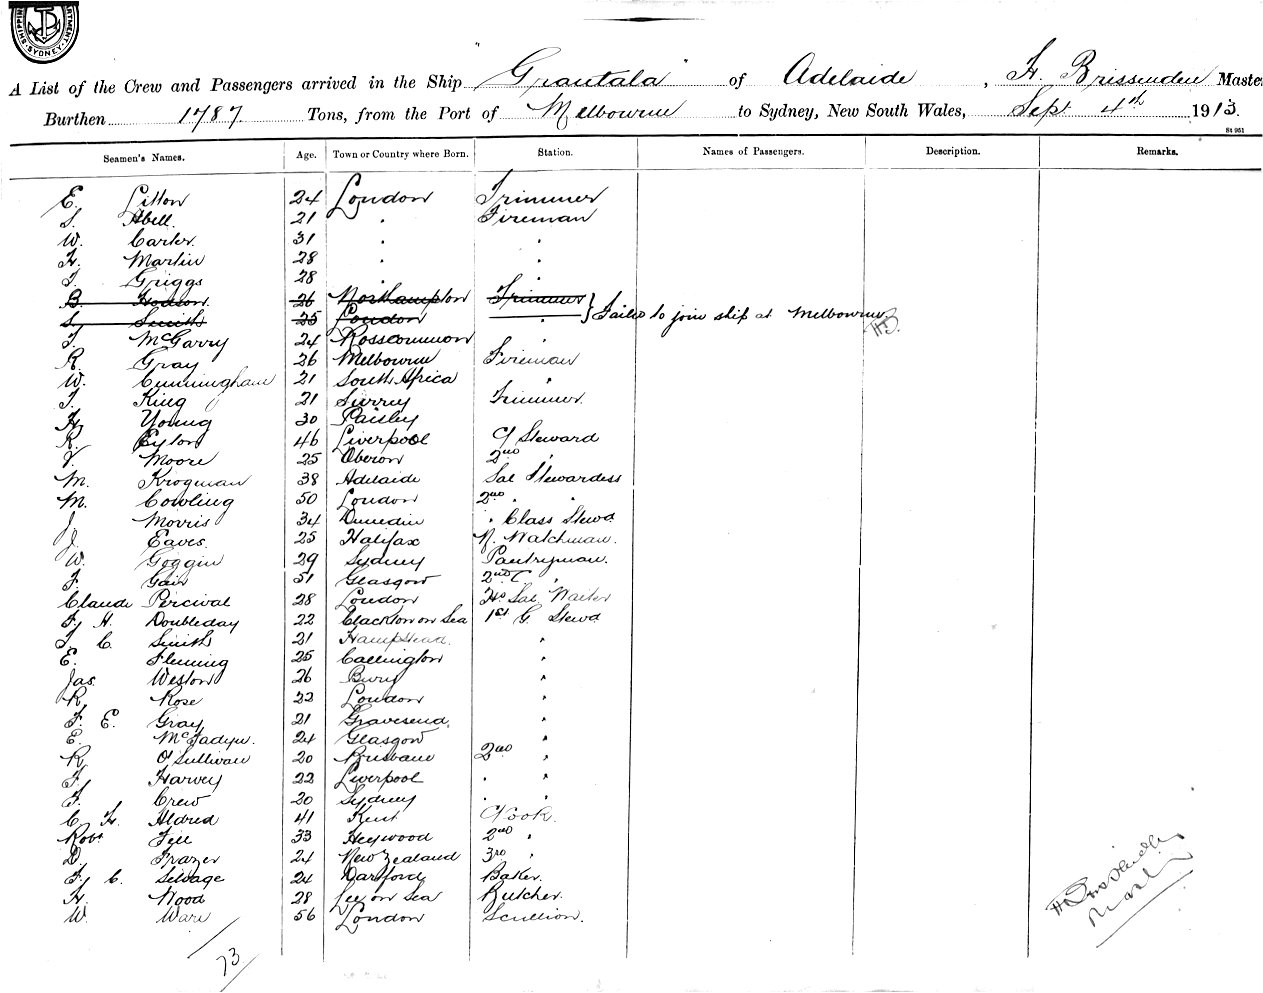 SHIPPING DEPARTMENT. SYDNEY
A List of the Crew and Passengers arrived in the Ship "Grantala" of Adelaide, H. Brissenden Master
Burthen 1787 Tons, from the Port of Melbourne to Sydney, New South Wales, Sept 4th 1913.
St 951
Seamen's Names. Age. Town or Country where Born. Station. Names of Passengers. Description. Remarks.
E. Litton 24 London Trimmer
S. Abell. 21 " Fireman
W. Carter. 31 " "
H. Martin 28 " "
T. Griggs 28 " "
B. Hodson. 26 Northampton Trimmer
S. Smith 25 London " } Failed to join ship at Melbourne HB.
T. McGarry 24 Rosscommon "
R. Gray 26 Melbourne Fireman
W. Cunningham 21 South Africa "
T. King 21 Surrey Trimmer.
H. Young 30 Paisley
R. Eylon 46 Liverpool C/ Steward
V. Moore 25 Oberon 2nd "
M. Krogman 38 Adelaide Sal Stewardess
M. Cowling 50 London 2nd " "
J. Morris 34 Dunedin " Class Stewd
J. Eaves. 25 Halifax N. Watchman.
W. Goggin 29 Sydney Pantryman.
F. Gair 51 Glasgow 2nd C "
Claude Percival 28 London Hd Sal. Waiter
F. H. Doubleday 22 Clackton on Sea 1st G. Stewd
T. C. Smith 21 Hampstead. "
E. Fleming 25 Callington "
Jas. Weston 26 Bury "
R. Rose 22 London "
F. E. Gray 21 Gravesend. "
E. McFadyn. 24 Glasgow "
R. O'Sullivan 20 Brisbane 2nd "
F. Harvey 22 Liverpool " "
F. Crew 20 Sydney " "
C. H. Aldred 41 Kent C/Cook.
Robt Fell 33 Heywood 2nd "
D. Frazer 24 New Zealand 3rd "
F. C. Selvage 24 Dartford Baker.
H. Wood 28 Lee on Sea Butcher.
W. Ware 56 London Scullion.
73
H Brissenden
Master